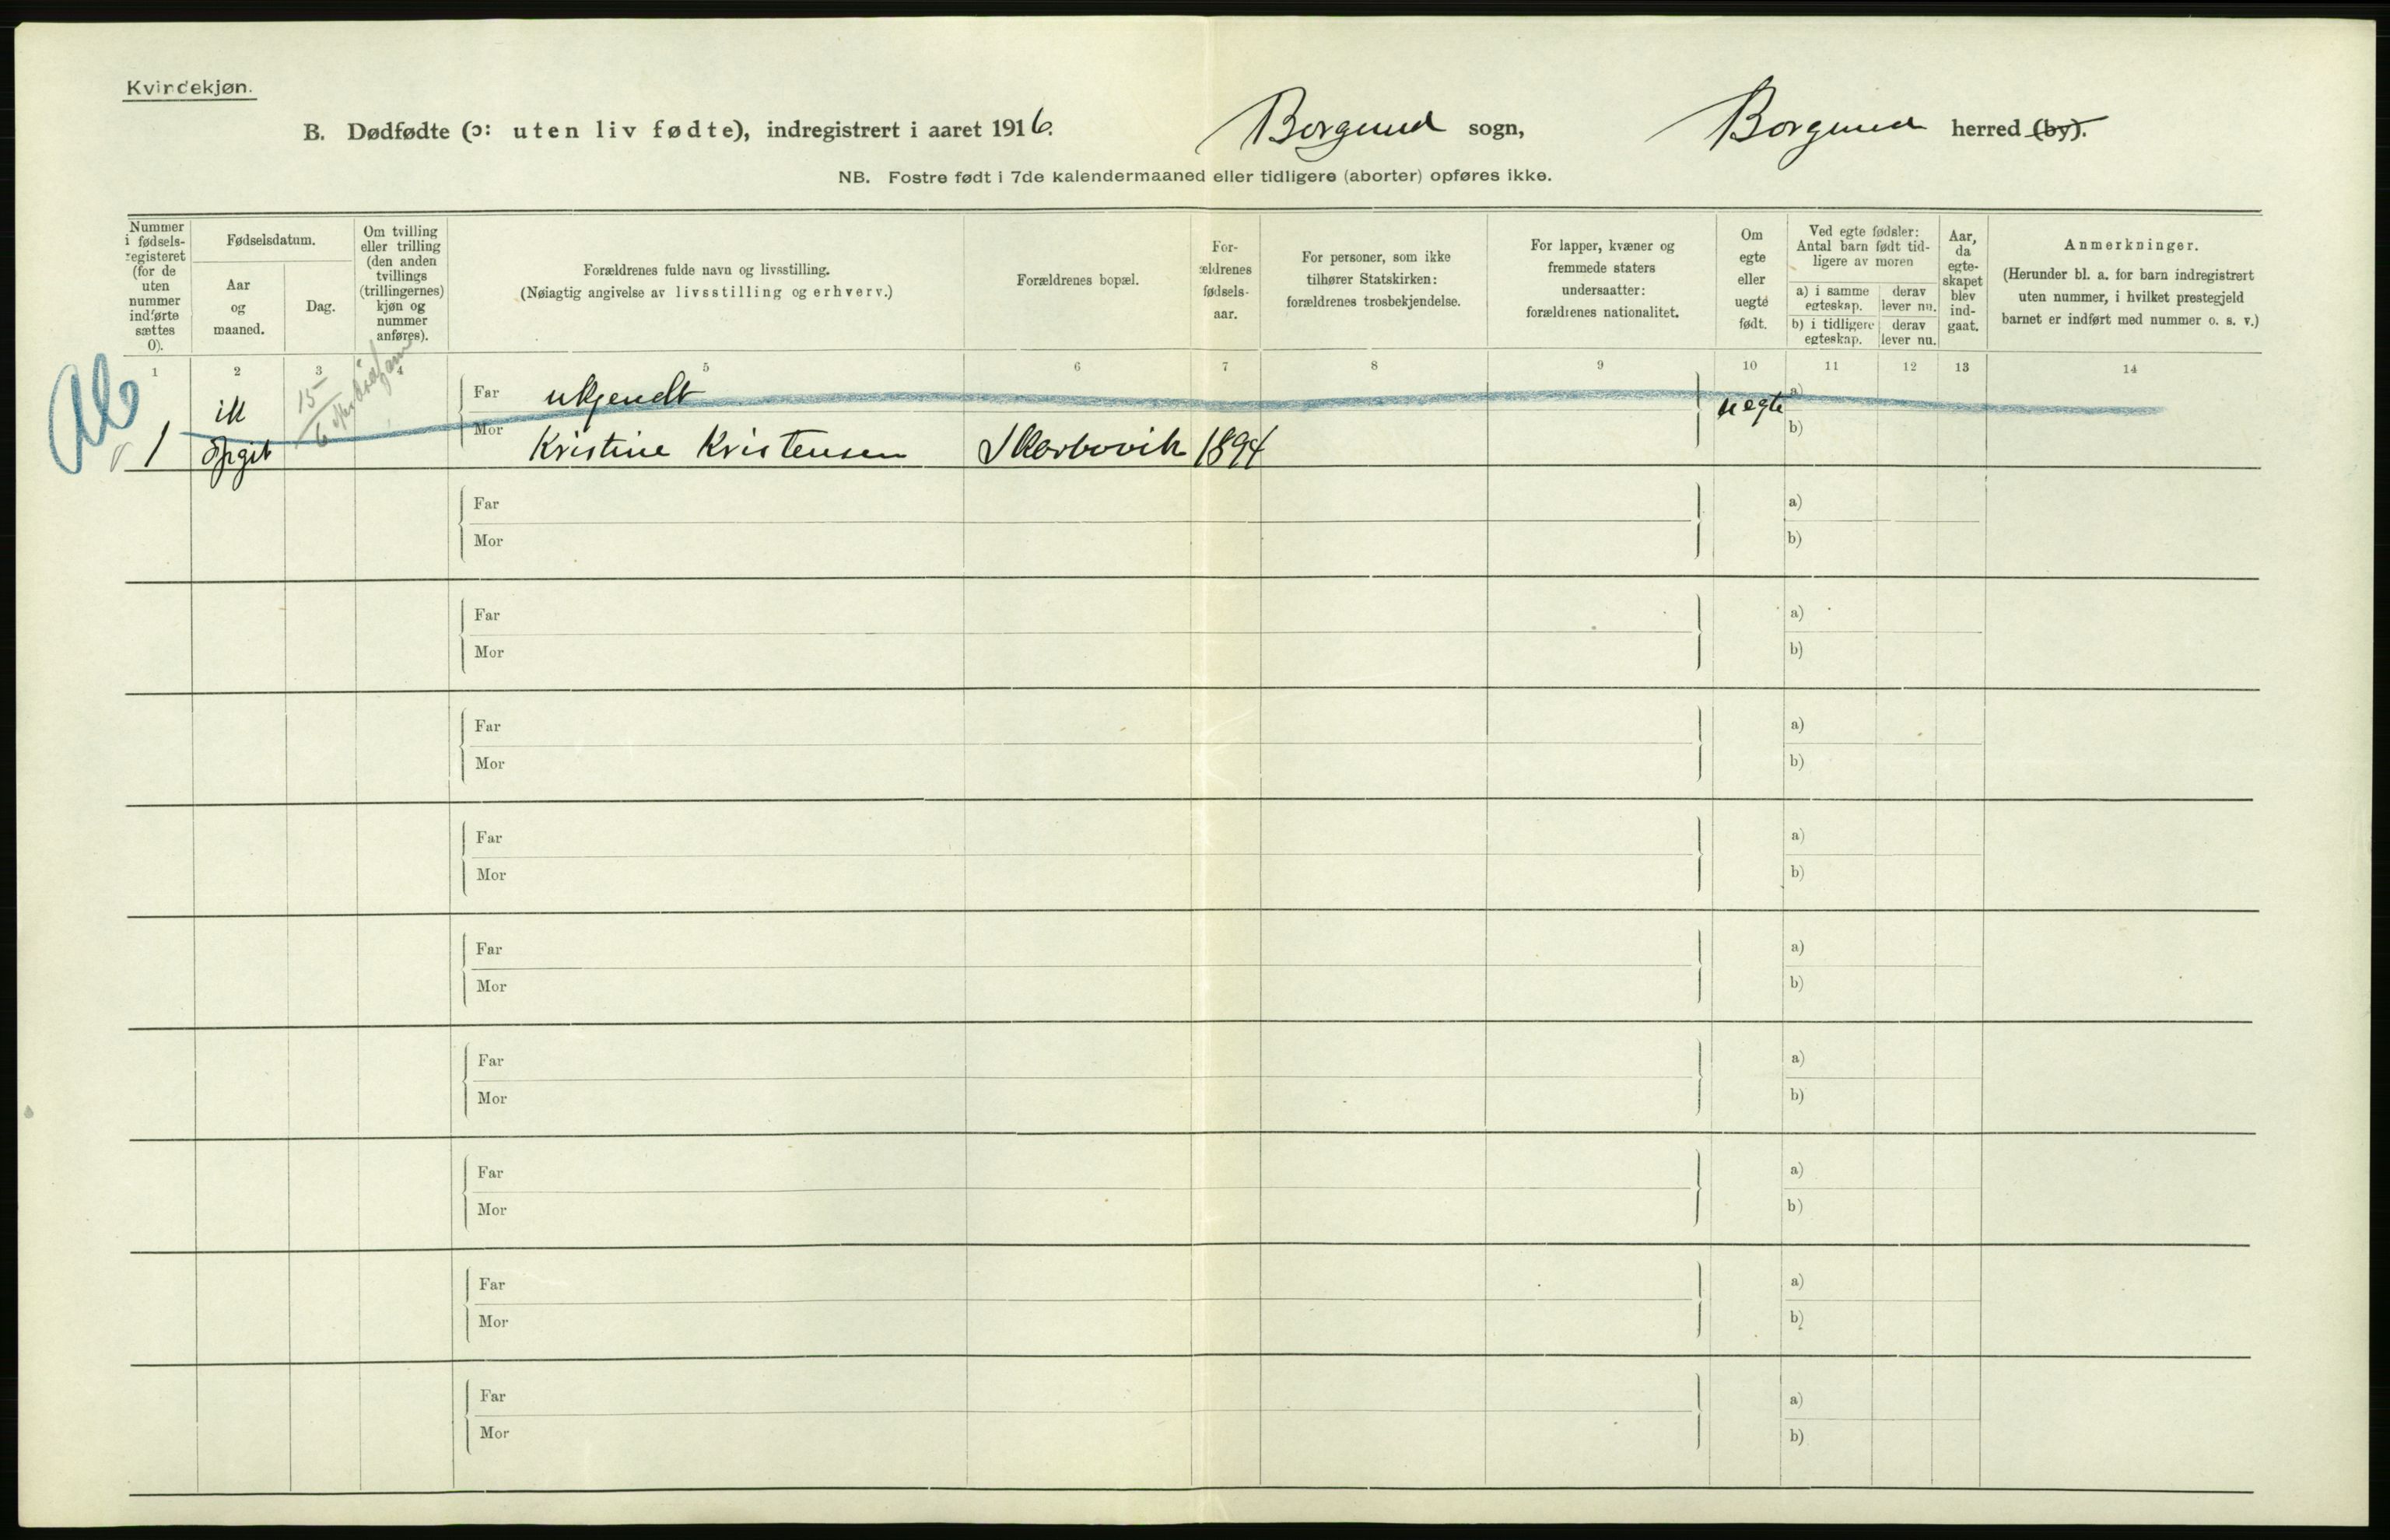 Kvindekjøn.
B. Dødfødte (ɔ: uten liv fødte), indregistrert i aaret 1916. Borgund sogn, Borgund herred (by).
NB. Fostre født i 7de kalendermaaned eller tidligere (aborter) opføres ikke.
Nummer i fødsels-registeret (for de uten nummer indførte sættes 0).
Fødselsdatum.
Aar og maaned.
Dag.
Om tvilling eller trilling (den anden tvillings (trillingernes) kjøn og nummer anføres).
Forældrenes fulde navn og livsstilling.
(Nøiagtig angivelse av livsstilling og erhverv.)
Forældrenes bopæl.
For-ældrenes fødsels-aar.
For personer, som ikke tilhører Statskirken: forældrenes trosbekjendelse.
For lapper, kvæner og fremmede staters undersaatter: forældrenes nationalitet.
Om egte eller uegte født.
Ved egte fødsler: Antal barn født tid-ligere av moren
a) i samme egteskap.
derav lever nu.
b) i tidligere egteskap.
derav lever nu.
Aar, da egte-skapet blev ind-gaat.
Anmerkninger.
(Herunder bl. a. for barn indregistrert uten nummer, i hvilket prestegjeld barnet er indført med nummer o. s. v.)
1 2 3 4 5 6 7 8 9 10 11 12 13 14
Ab
15/6
1 ik opgit
Far ukjendt uegte a)
Mor Kristine Kristensen Skarbovik 1894 b)
Far a)
Mor b)
Far a)
Mor b)
Far a)
Mor b)
Far a)
Mor b)
Far a)
Mor b)
Far a)
Mor b)
Far a)
Mor b)
Far a)
Mor b)
Far a)
Mor b)